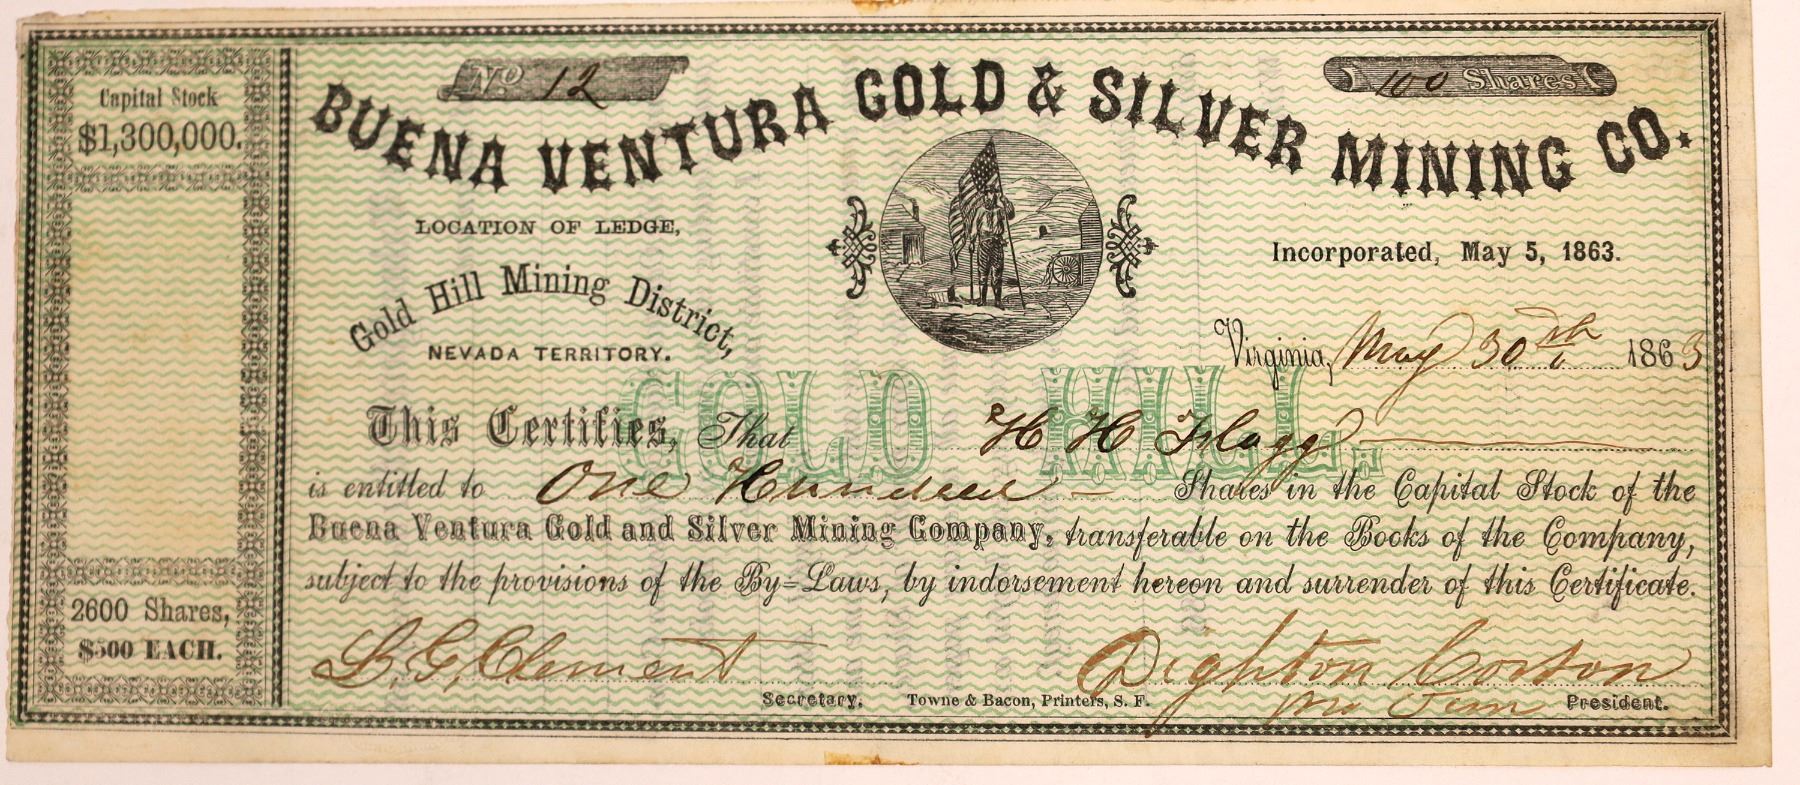 Capital Stock
$1,300,000.
2600 Shares,
$500 EACH.
No 12
100 Shares
BUENA VENTURA GOLD & SILVER MINING CO.
LOCATION OF LEDGE,
Gold Hill Mining District,
NEVADA TERRITORY.
Incorporated, May 5, 1863.
Virginia, May 30th 1863
GOLD HILL.
This Certifies, That H H Flagg
is entitled to One Hundred Shares in the Capital Stock of the
Buena Ventura Gold and Silver Mining Company, transferable on the Books of the Company,
subject to the provisions of the By-Laws, by indorsement hereon and surrender of this Certificate.
L. G. Clement
Secretary.
Towne & Bacon, Printers, S. F.
Dighton Corson
Pro Tem President.